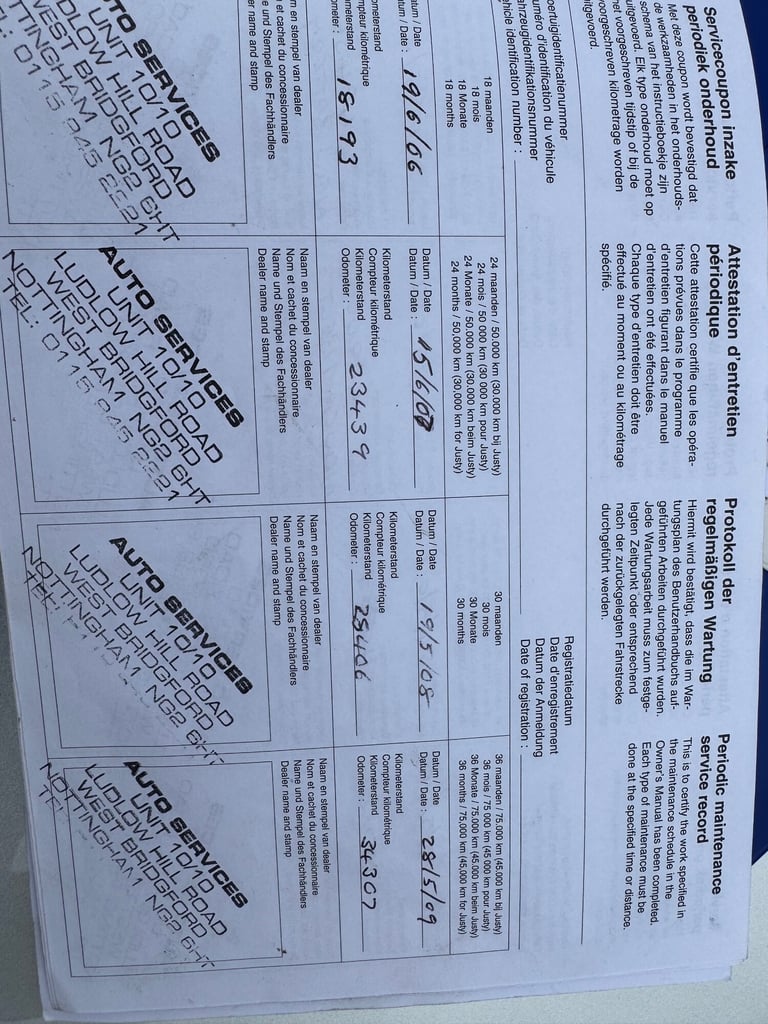 Servicecoupon inzake
periodiek onderhoud
Met deze coupon wordt bevestigd dat
de werkzaamheden in het onderhouds-
schema van het instructieboekje zijn
uitgevoerd. Elk type onderhoud moet op
het voorgeschreven tijdstip of bij de
voorgeschreven kilometrage worden
uitgevoerd.
Attestation d'entretien
périodique
Cette attestation certifie que les opéra-
tions prévues dans le programme
d'entretien figurant dans le manuel
d'entretien ont été effectuées.
Chaque type d'entretien doit être
effectué au moment ou au kilométrage
spécifié.
Protokoll der
regelmäßigen Wartung
Hiermit wird bestätigt, dass die im War-
tungsplan des Benutzerhandbuchs auf-
geführten Arbeiten durchgeführt wurden.
Jede Wartungsarbeit muss zum festge-
legten Zeitpunkt oder entsprechend
nach der zurückgelegten Fahrstrecke
durchgeführt werden.
Periodic maintenance
service record
This is to certify the work specified in
the maintenance schedule in the
Owner's Manual has been completed.
Each type of maintenance must be
done at the specified time or distance.
oertuigidentificatienummer
uméro d'identification du véhicule
ahrzeugidentifikationsnummer
ehicle identification number :
Registratiedatum
Date d'enregistrement
Datum der Anmeldung
Date of registration :
18 maanden
18 mois
18 Monate
18 months
atum / Date
atum / Date : 19/6/06
lometerstand
ompteur kilométrique
lometerstand
ometer : 18193
m en stempel van dealer
m et cachet du concessionnaire
me und Stempel des Fachhändlers
aler name and stamp
AUTO SERVICES
UNIT 10/10
LUDLOW HILL ROAD
WEST BRIDGFORD
NOTTINGHAM NG2 6HT
TEL: 0115 945 2221
24 maanden / 50.000 km (30.000 km bij Justy)
24 mois / 50 000 km (30 000 km pour Justy)
24 Monate / 50.000 km (30.000 km beim Justy)
24 months / 50,000 km (30,000 km for Justy)
Datum / Date
Datum / Date : 15/6/07
Kilometerstand
Compteur kilométrique
Kilometerstand
Odometer : 23439
Naam en stempel van dealer
Nom et cachet du concessionnaire
Name und Stempel des Fachhändlers
Dealer name and stamp
AUTO SERVICES
UNIT 10/10
LUDLOW HILL ROAD
WEST BRIDGFORD
NOTTINGHAM NG2 6HT
TEL: 0115 945 2221
30 maanden
30 mois
30 Monate
30 months
Datum / Date
Datum / Date : 19/5/08
Kilometerstand
Compteur kilométrique
Kilometerstand
Odometer : 25406
Naam en stempel van dealer
Nom et cachet du concessionnaire
Name und Stempel des Fachhändlers
Dealer name and stamp
AUTO SERVICES
UNIT 10/10
LUDLOW HILL ROAD
WEST BRIDGFORD
NOTTINGHAM NG2 6HT
TEL:
36 maanden / 75.000 km (45.000 km bij Justy)
36 mois / 75 000 km (45 000 km pour Justy)
36 Monate / 75.000 km (45.000 km beim Justy)
36 months / 75,000 km (45,000 km for Justy)
Datum / Date
Datum / Date : 28/5/09
Kilometerstand
Compteur kilométrique
Kilometerstand
Odometer : 34307
Naam en stempel van dealer
Nom et cachet du concessionnaire
Name und Stempel des Fachhändlers
Dealer name and stamp
AUTO SERVICES
UNIT 10/10
LUDLOW HILL ROAD
WEST BRIDGFORD
NOTTINGHAM NG2 6HT